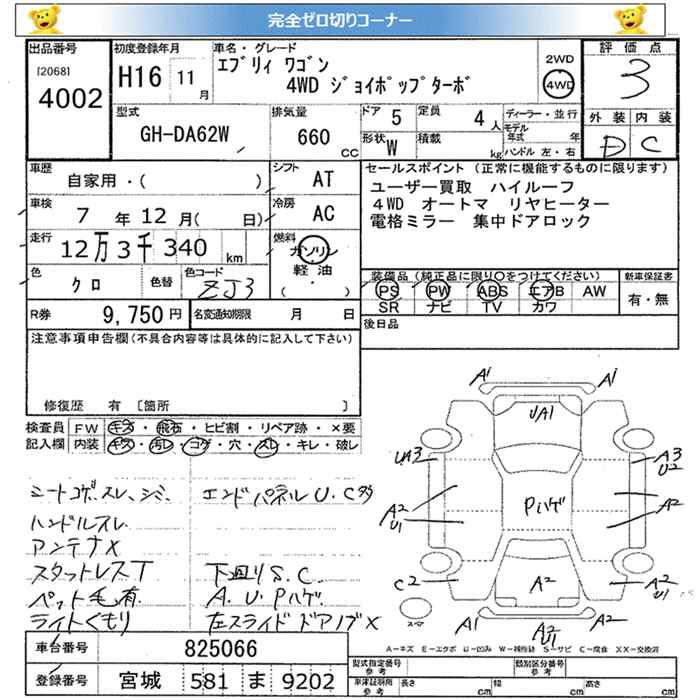 完全ゼロ切りコーナー
出品番号 [2068] 4002
初度登録年月 H16 11月
車名・グレード エブリィ ワゴン 4WD ジョイポップターボ
2WD 4WD
評価点 3
外装 内装 D C
型式 GH-DA62W
排気量 660 CC
ドア 5 定員 4人
形状 W 積載 kg
ディーラー・並行
モデル年式 年
ハンドル 左・右
車歴 自家用・( )
シフト AT
車検 7年 12月( 日)
冷房 AC
走行 12万3千340 km
燃料 ガソリン 軽油 ( ・ )
色 クロ 色替 色コード ZJ3
R券 9,750円 名変通知期限 月 日
セールスポイント (正常に機能するものに限ります)
ユーザー買取 ハイルーフ
4WD オートマ リヤヒーター
電格ミラー 集中ドアロック
装備品(純正品に限り○をつけてください) 新車保証書
PS PW ABS エアB AW 有・無
SR ナビ TV カワ
後日品
注意事項申告欄(不具合内容等は具体的に記入して下さい)
修復歴 有 [箇所 ]
検査員 FW キズ・飛石・ヒビ割・リペア跡・×要
記入欄 内装 キズ・汚レ・コゲ・穴・スレ・キレ・破レ
シートコゲ、スレ、シミ エンドパネルU、C多
ハンドルスレ
アンテナX
スタットレスT 下廻りS、C
ペット毛有 A、U、Pハゲ
ライトくもり 左スライドドアノブX
A1 A1
UA1
UA3 A3 U2
A2 U1 Pハゲ A2
C2 A2 A2 U1
A1 A2 U1 A2
スペア
A-キズ E-エクボ U-凹み W-補修跡 S-サビ C-腐食 XX-交換済
車台番号 825066
登録番号 宮城 581 ま 9202
型式指定番号 参考 類別区分番号 参考
車庫証明 参考 長さ cm 幅 cm 高さ cm